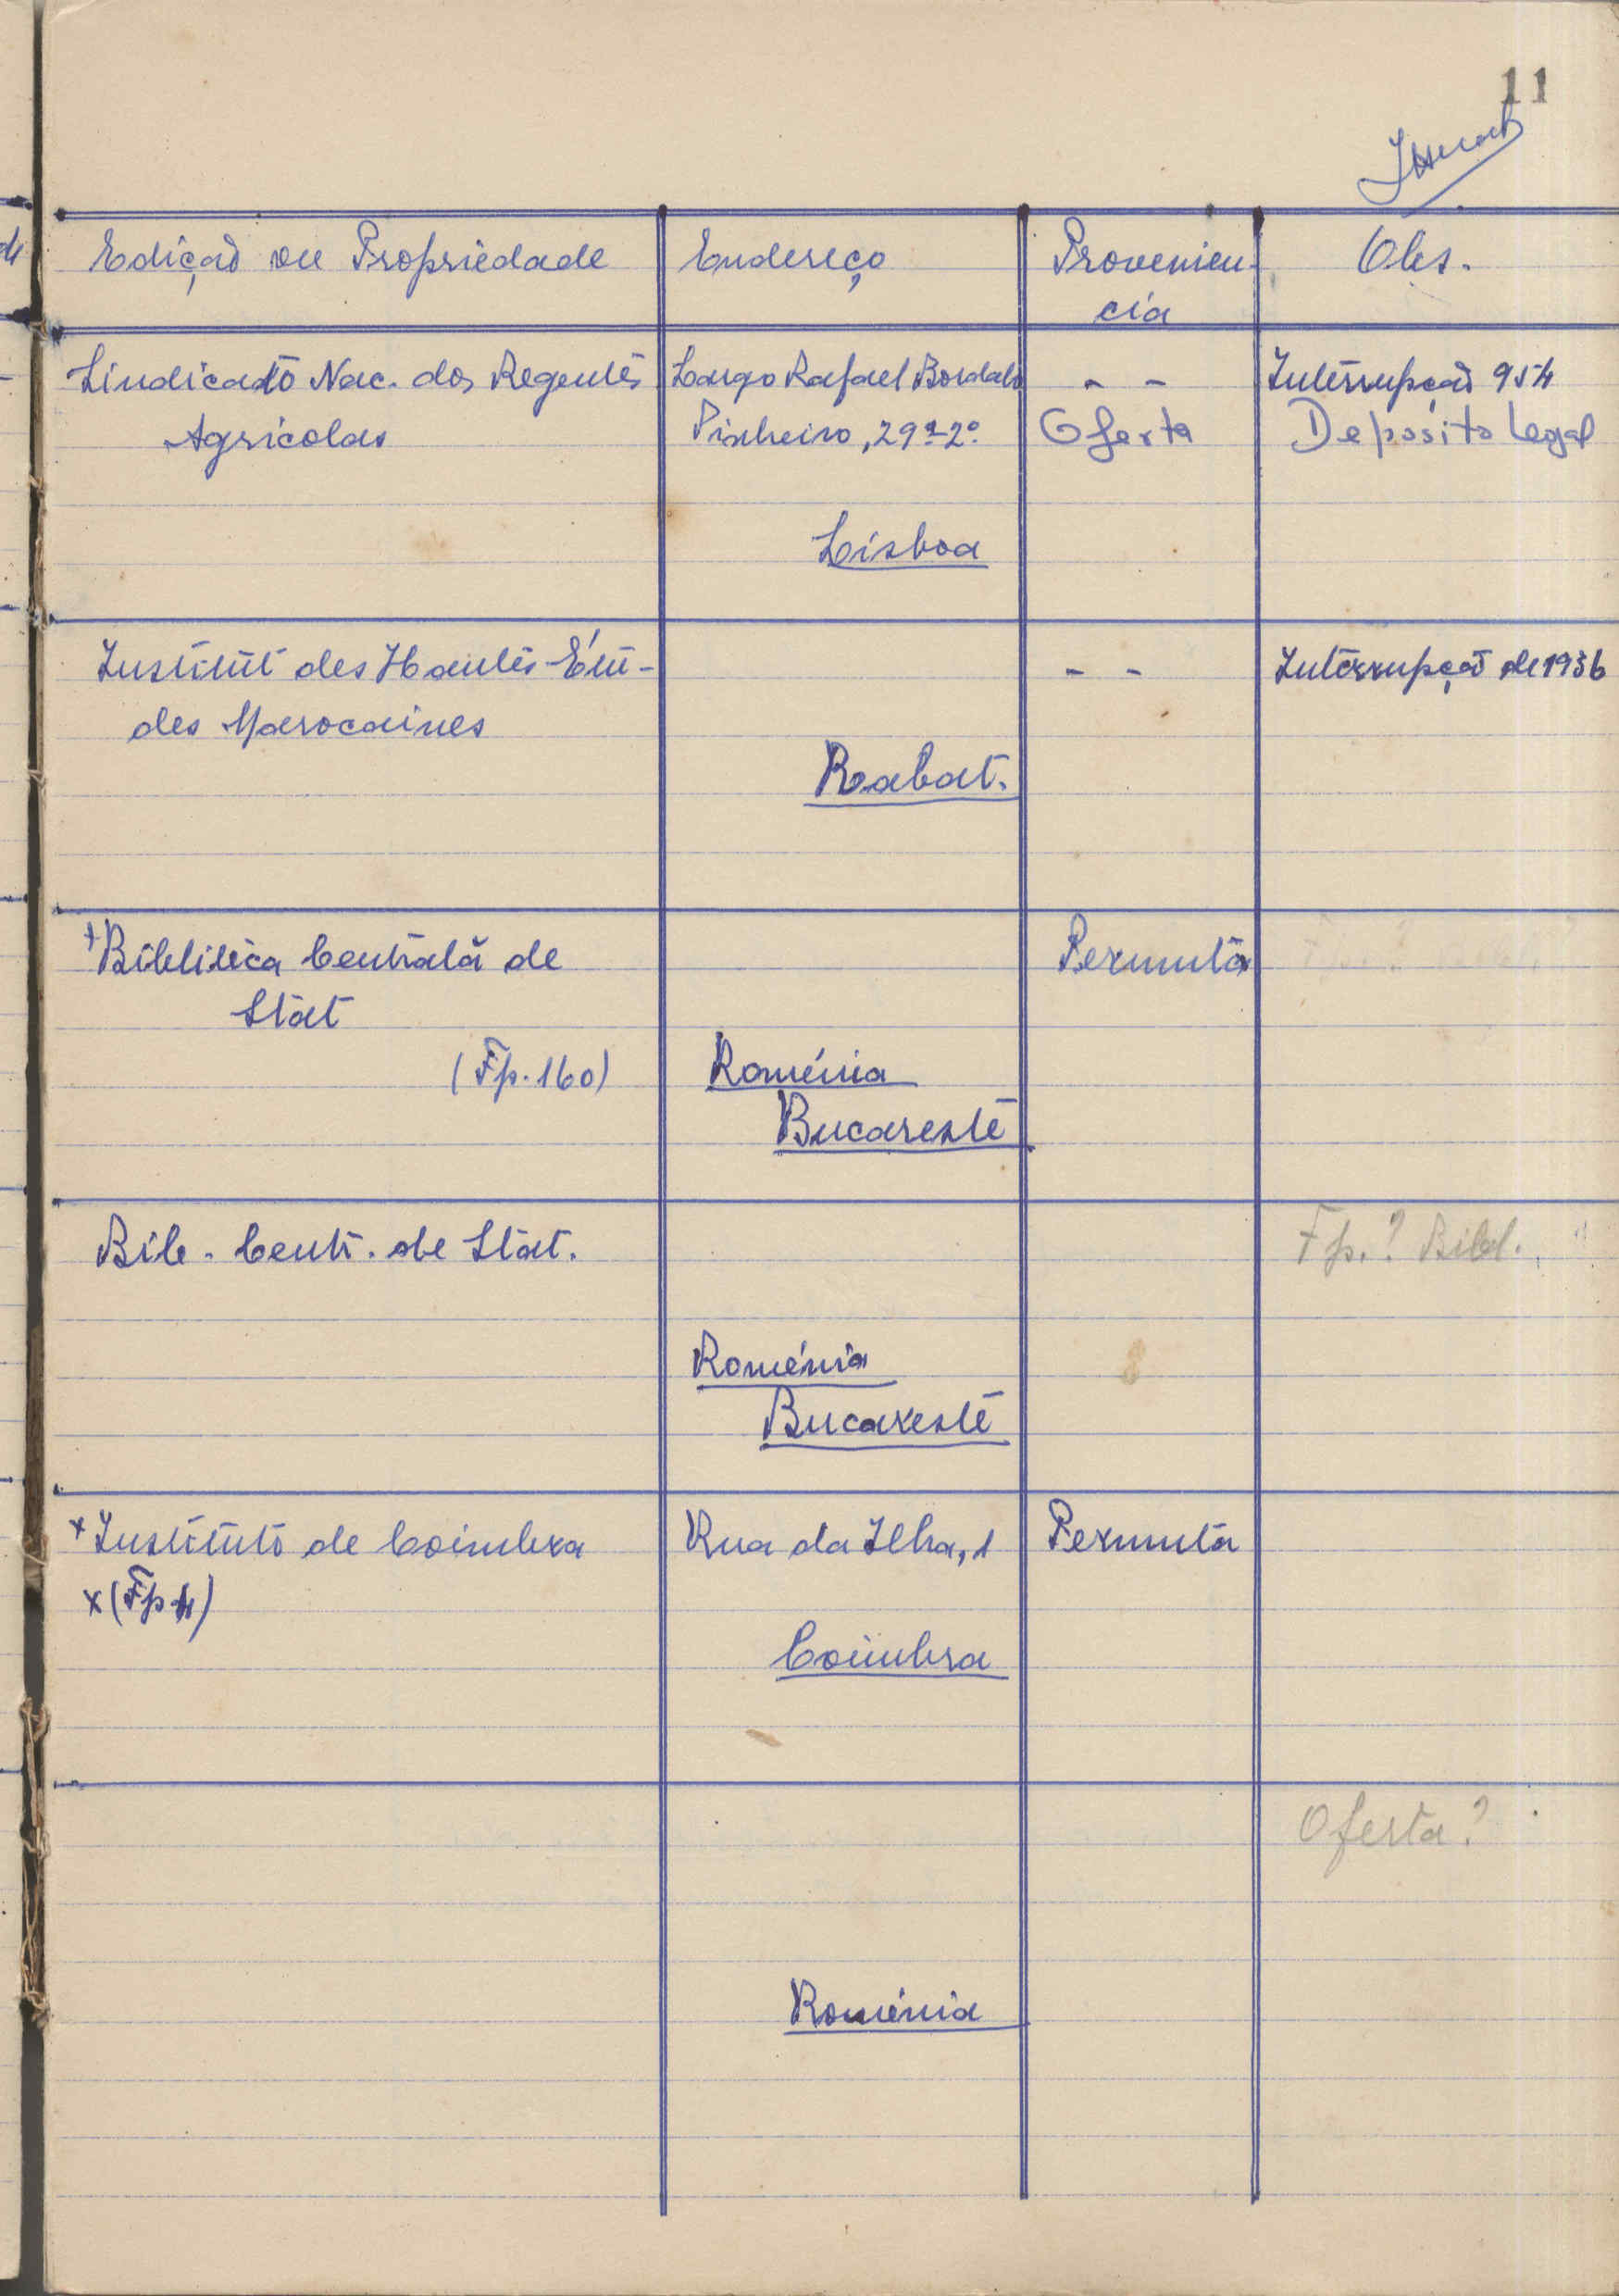 11
Edição ou Propriedade Endereço Provenien- Obs.
cia
Sindicato Nac. dos Regentes Largo Rafael Bordalo - - Interrupção 954
Agricolas Pinheiro, 29-2º. Oferta Depósito Legal
Lisboa
Institut des Hautes-Étu- - - Interrupção de 1936
des Marocaines
Rabat.
+ Biblioteca Centrală de Permuta
Stat
(Fp. 160) Roménia
Bucareste
Bib. Centr. de Stat. Fp.? Bibl.
Roménia
Bucareste
x Instituto de Coimbra Rua da Ilha, 1 Permuta
x (Fp. 4)
Coimbra
Oferta?
Roménia